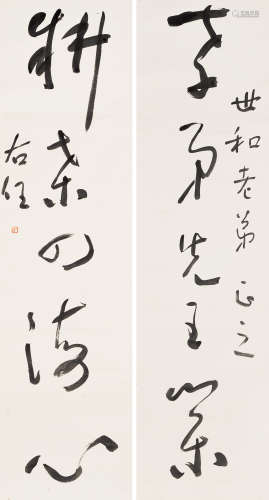 孝弟先王業
世和老弟正之
耕桑四海心
右任